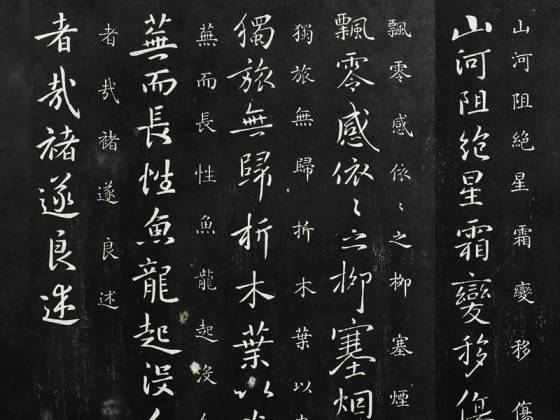 山河阻絶星霜變移傷
山河阻絶星霜變移傷
飄零感依々之柳塞煙
飄零感依々之柳塞烟
獨旅無歸折木葉以
獨旅無歸折木葉以
蕪而長性魚龍起沒
蕪而長性魚龍起没
者哉褚遂良述
者哉褚遂良述